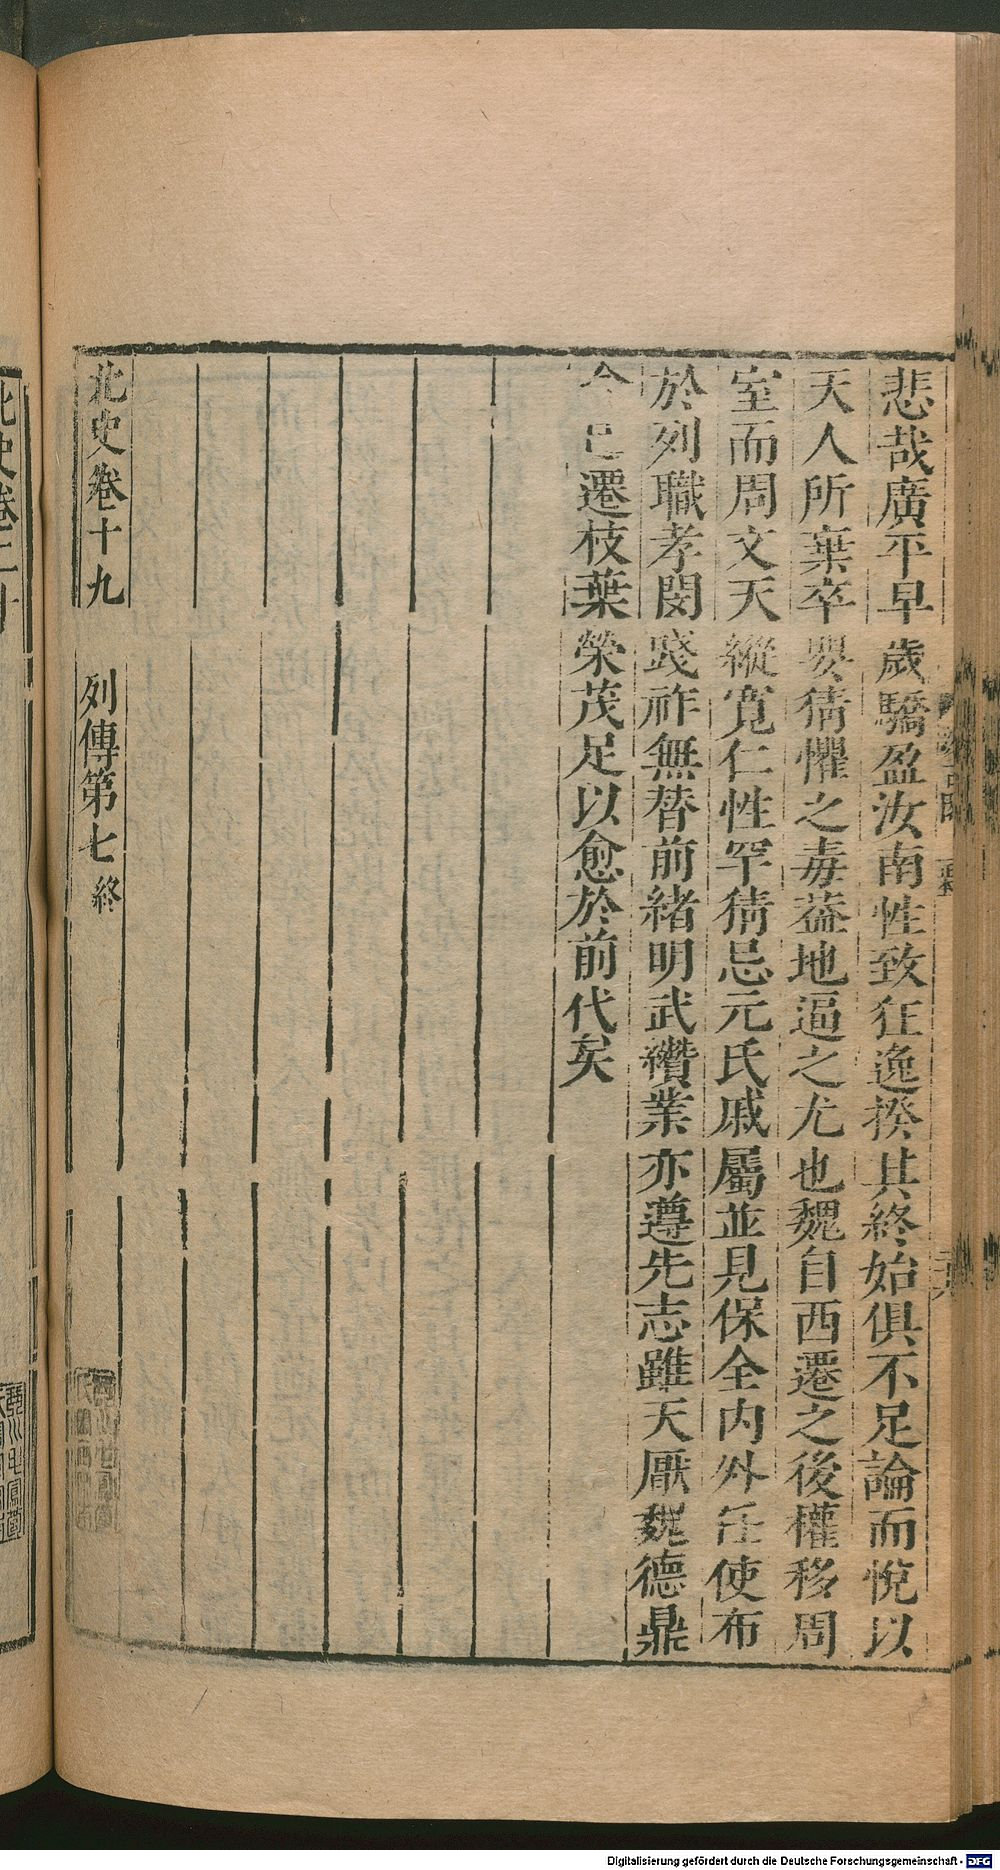 悲哉廣平早歲驕盈汝南性致狂逸揆其終始俱不足論而悅以
天人所棄卒嬰猜懼之毒蓋地逼之尤也魏自西遷之後權移周
室而周文天縱寬仁性罕猜忌元氏戚屬並見保全內外任使布
於列職孝閔踐祚無替前緒明武纘業亦遵先志雖天厭魏德鼎
命已遷枝葉榮茂足以愈於前代矣
北史卷十九 列傳第七 終
北史卷二十
Digitalisierung gefördert durch die Deutsche Forschungsgemeinschaft - DFG